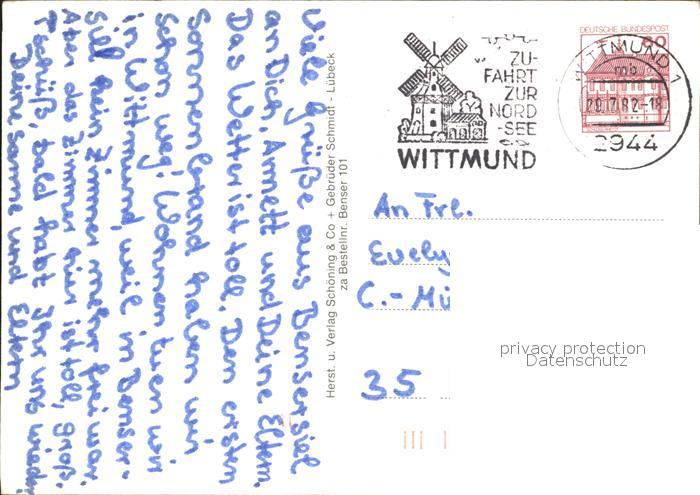 Viele Grüße aus Bensersiel
an Dich, Annett und Deine Eltern.
Das Wetter ist toll. Den ersten
Sonnenbrand haben wir
schon weg. Wohnen tuen wir
in Wittmund, weil in Benser-
siel kein Zimmer mehr frei war.
Aber das Zimmer hier ist toll, groß.
Tschüß, bald habt Ihr uns wieder
Deine Sanne und Eltern
Herst. u. Verlag Schöning & Co + Gebrüder Schmidt - Lübeck
za Bestellnr. Benser 101
ZU-
FAHRT
ZUR
NORD
-SEE
WITTMUND
DEUTSCHE BUNDESPOST
60
WITTMUND 1
mb
28.-7.82-18
2944
An Frl.
Evely
C.-Mü
35
privacy protection
Datenschutz